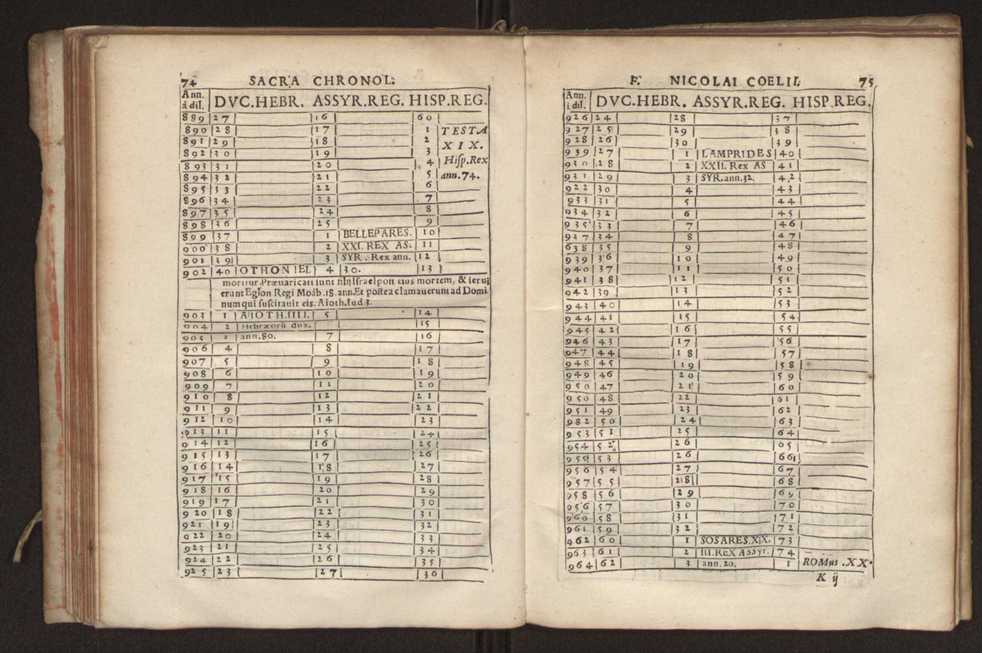 74 SACRA CHRONOL:
Ann. à dil. DVC.HEBR. ASSYR.REG. HISP.REG.
889 27 16 60
890 28 17 1 TESTA
891 29 18 2 XIX.
892 30 19 3
893 31 20 4 Hisp.Rex
894 32 21 5 ann.74.
895 33 22 6
896 34 23 7
897 35 24 8
898 36 25 9
899 37 1 BELLEPARES. 10
900 38 2 XXI. REX AS. 11
901 39 3 SYR. Rex ann. 12
902 40 OTHONIEL 4 30. 13
moritur. Prævaricati sunt filij Israel post eius mortem, & seruierunt Eglon Regi Moab. 18. ann. Et postea clamauerunt ad Dominum qui suscitauit eis. Aioth. Iud 3.
903 1 AIOTH.IIII. 5 14
904 2 Hebræorū dux. 15
905 3 ann.80. 7 16
906 4 8 17
907 5 9 18
908 6 10 19
909 7 11 20
910 8 12 21
911 9 13 22
912 10 14 23
913 11 15 24
914 12 16 25
915 13 17 26
916 14 18 27
917 15 19 28
918 16 20 29
919 17 21 30
920 18 22 31
921 19 23 32
922 20 24 33
923 21 25 34
924 22 26 35
925 23 27 36
F. NICOLAI COELII. 75
Ann. à dil. DVC.HEBR. ASSYR.REG. HISP.REG.
926 24 28 37
927 25 29 38
928 26 30 39
939 27 1 LAMPRIDES 40
930 28 2 XXII. Rex AS 41
931 29 3 SYR.ann.32. 42
922 30 4 43
933 31 5 44
934 32 6 45
935 33 7 46
937 34 8 47
638 35 9 48
939 36 10 49
940 37 11 50
941 38 12 51
942 39 13 52
943 40 14 53
944 41 15 54
945 42 16 55
946 43 17 56
947 44 18 57
948 45 19 58
949 46 20 59
950 47 21 60
950 48 22 61
951 49 23 62
982 50 24 63
953 51 25 64
954 52 26 65
955 53 26 66
956 54 27 67
957 55 28 68
958 56 29 69
956 57 30 70
960 58 31 71
961 59 32 72
962 60 1 SOSARES.XIX. 73
963 61 2 III.REX Assyr. 74
964 62 3 ann.20. 1 ROMus.XX.
K ij